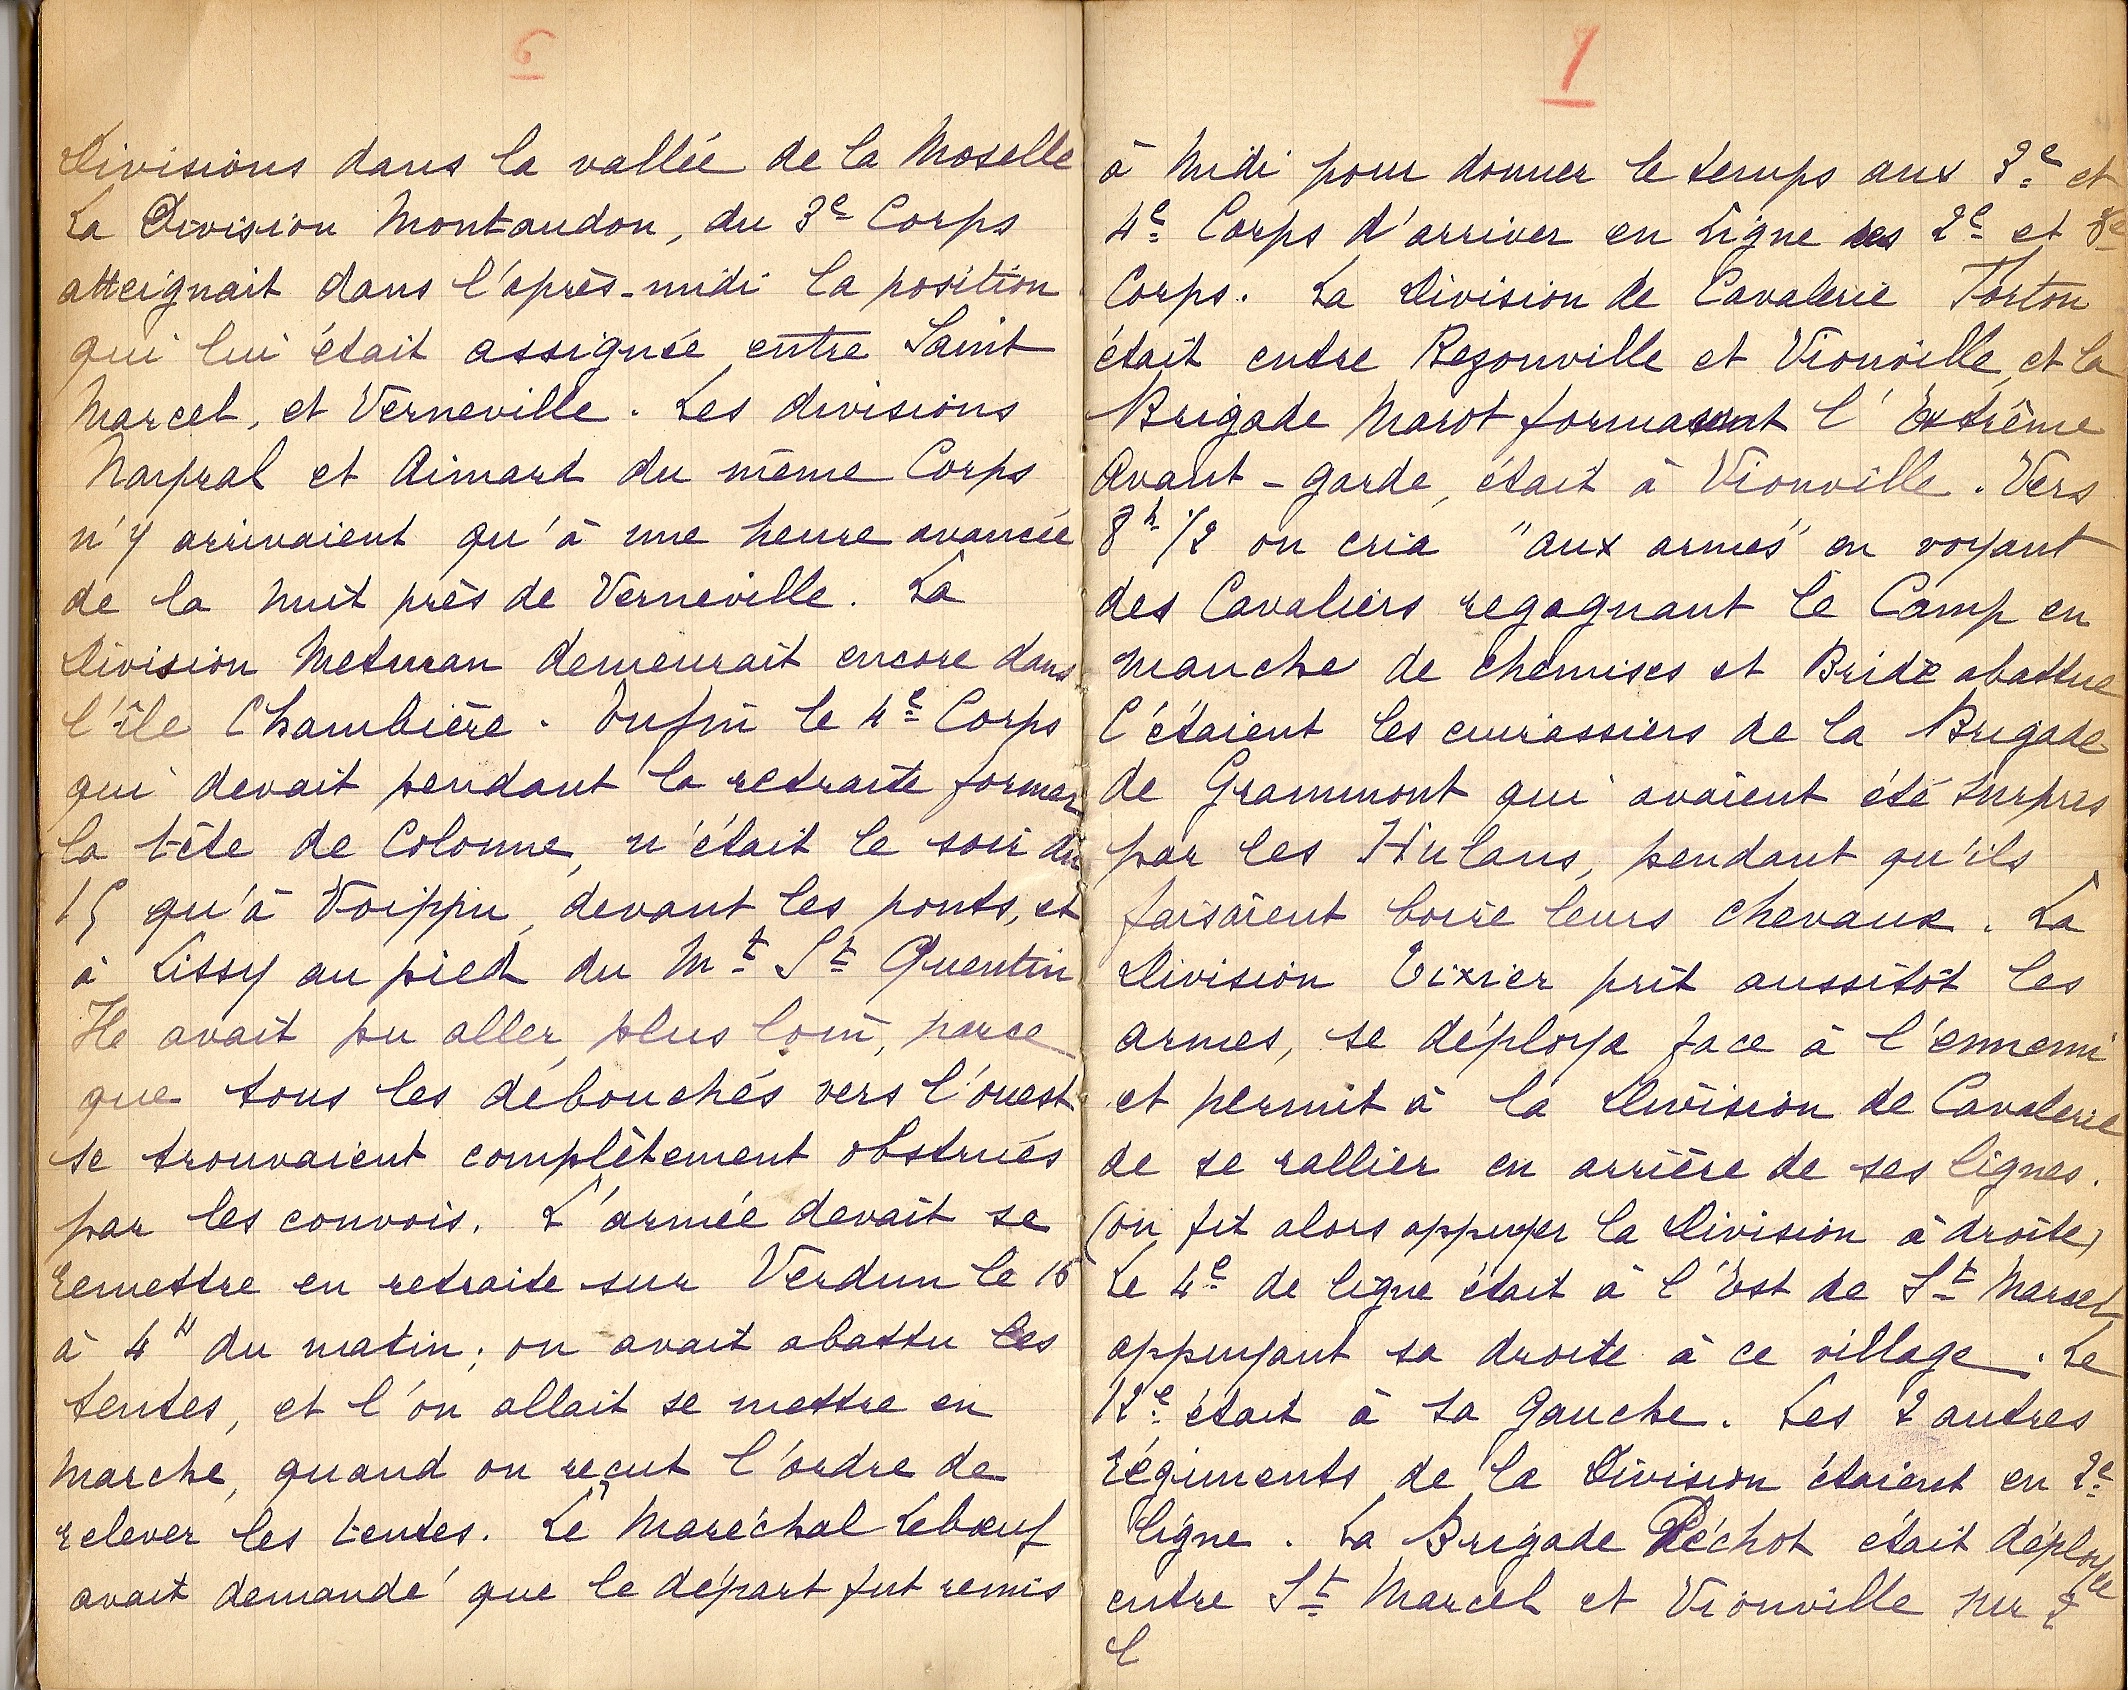 6
Divisions dans la vallée de la Moselle
La Division Montaudon, du 3e Corps
atteignait dans l'après-midi la position
qui lui était assignée entre Saint
Marcel, et Verneville. Les divisions
Narpral et Aimard du même Corps
n'y arrivaient qu'à une heure avancée
de la nuit près de Verneville. La
Division Metman demeurait encore dans
l'île Chambière. Enfin le 4e Corps
qui devait pendant la retraite former
la tête de Colonne, n'était le soir du
15 qu'à Voippin, devant les ponts, et
à Lissy au pied du Mt St Quentin
Ile avait pu aller, plus loin, parce
que tous les débouchés vers l'ouest
se trouvaient complètement obstrués
par les convois. L'armée devait se
remettre en retraite sur Verdun le 16
à 4H du matin; on avait abattu les
tentes, et l'on allait se mettre en
marche, quand on reçut l'ordre de
relever les tentes. Le Maréchal Lebœuf
avait demandé que le départ fut remis
7
à Midi pour donner le temps aux 3e et
4e Corps d'arriver en Ligne des 2e et
Corps. La Division de Cavalerie Forton
était entre Rezonville et Vionville, et la
Brigade Marot formant l'Extrême
Avant-garde, était à Vionville. Vers
8h 1/2 on cria "aux armes" en voyant
des Cavaliers regagnant le Camp en
manche de chemises et Bride abattue
C'étaient les cuirassiers de la Brigade
de Grammont qui avaient été surpris
par les Hulans, pendant qu'ils
faisaient boire leurs chevaux. La
Division Tixier prit aussitôt les
armes, se déploya face à l'ennemi
et permit à la Division de Cavalerie
de se rallier en arrière de ses lignes.
(on fit alors appuyer la Division à droite)
Le 4e de ligne était à l'Est de St Marcel
appuyant sa droite à ce village. Le
12e était à sa Gauche. Les 2 autres
régiments de la Division étaient en 2e
ligne. La Brigade Péchot était déployée
entre St Marcel et Vionville sur 2
l